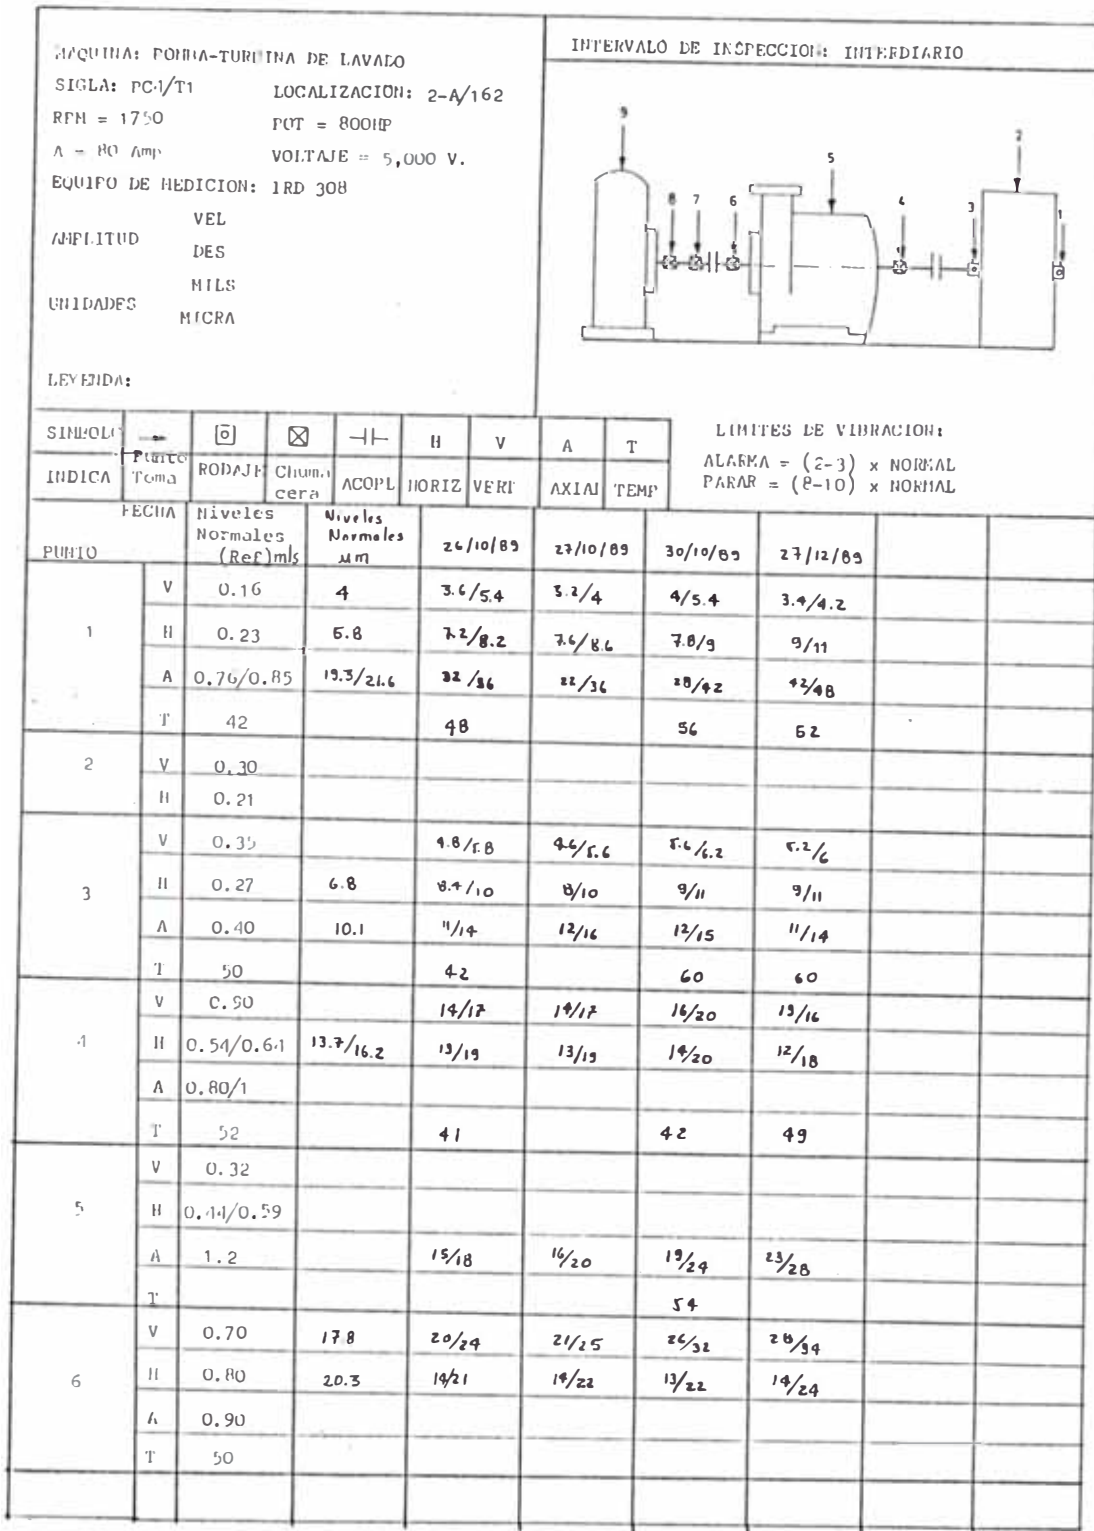 MAQUINA: BOMBA-TURBINA DE LAVADO
SIGLA: PC-1/T1 LOCALIZACION: 2-A/162
RPM = 1750 POT = 800HP
A = 80 Amp VOLTAJE = 5,000 V.
EQUIPO DE MEDICION: IRD 308
AMPLITUD VEL
DES
UNIDADES MILS
MICRA
LEYENDA:
INTERVALO DE INSPECCION: INTERDIARIO
9 8 7 6 5 4 3 2 1
SIMBOLO H V A T
INDICA Punto Toma RODAJE Chumacera ACOPL HORIZ VERT AXIAL TEMP
LIMITES DE VIBRACION:
ALARMA = (2-3) x NORMAL
PARAR = (8-10) x NORMAL
FECHA Niveles Normales (Ref)mls Niveles Normales µm 26/10/89 27/10/89 30/10/89 27/12/89
PUNTO
1 V 0.16 4 3.6/5.4 3.2/4 4/5.4 3.4/4.2
H 0.23 5.8 7.2/8.2 7.6/8.6 7.8/9 9/11
A 0.76/0.85 19.3/21.6 32/36 22/36 28/42 42/48
T 42 48 56 52
2 V 0.30
H 0.21
3 V 0.35 4.8/5.8 4.6/5.6 5.6/6.2 5.2/6
H 0.27 6.8 8.4/10 8/10 9/11 9/11
A 0.40 10.1 11/14 12/16 12/15 11/14
T 50 42 60 60
4 V 0.90 14/17 14/17 16/20 13/16
H 0.54/0.64 13.7/16.2 13/19 13/19 14/20 12/18
A 0.80/1
T 52 41 42 49
5 V 0.32
H 0.44/0.59
A 1.2 15/18 16/20 19/24 23/28
T 54
6 V 0.70 17.8 20/24 21/25 26/32 28/34
H 0.80 20.3 14/21 14/22 13/22 14/24
A 0.90
T 50